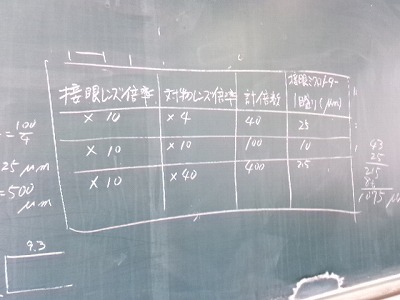 接眼レンズ倍率 対物レンズ倍率 計倍数 接眼ミクロメーター
1目もり(μm)
×10 ×4 40 25
×10 ×10 100 10
×10 ×40 400 2.5
= 100/4
25 μm
= 500
μm
43
25
215
1075 μ
9.3